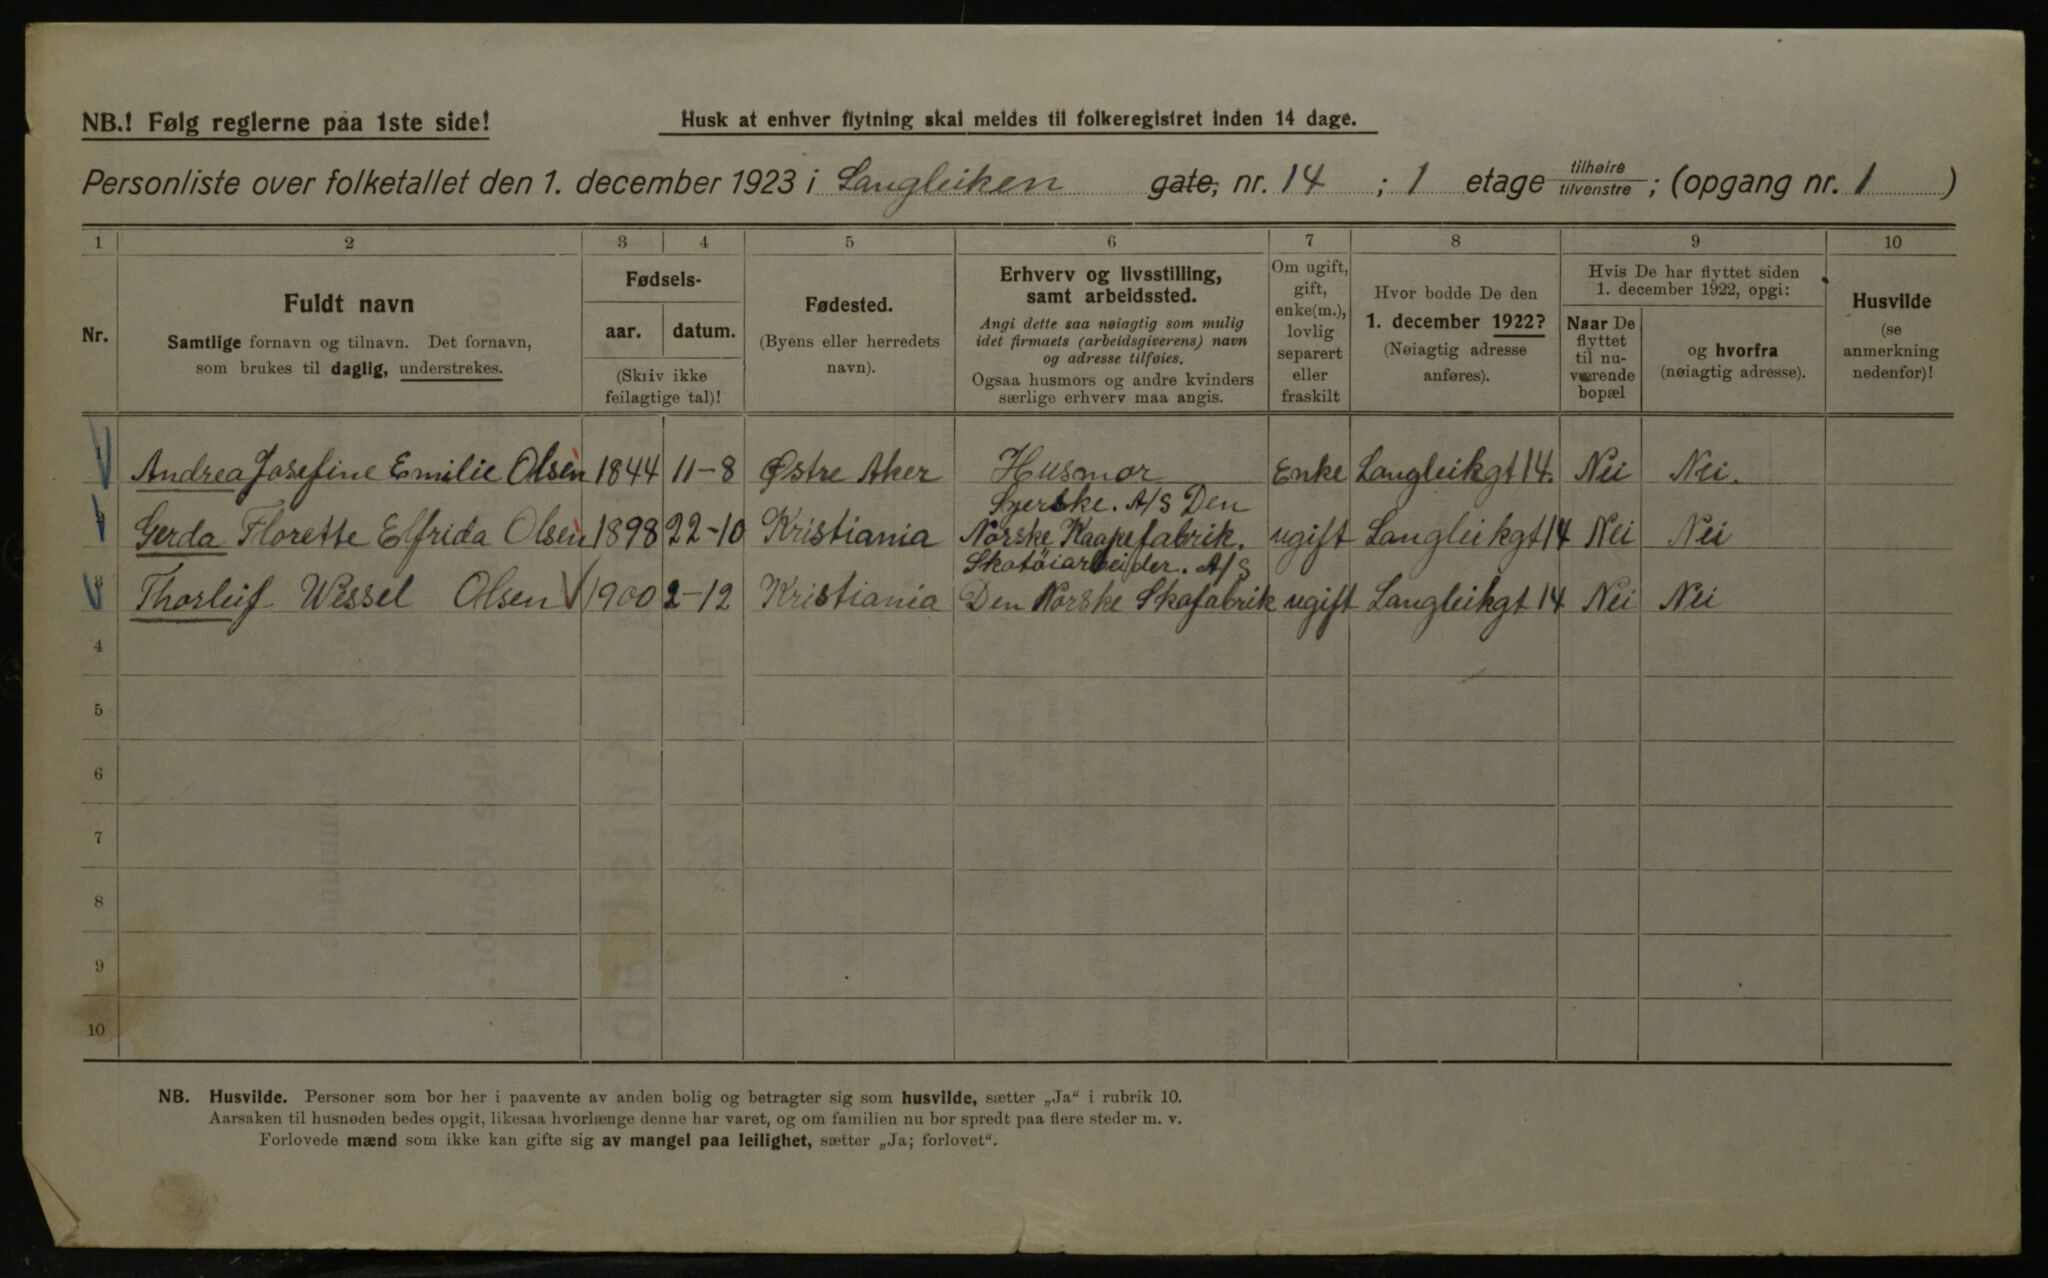 NB.! Følg reglerne paa 1ste side!
Husk at enhver flytning skal meldes til folkeregistret inden 14 dage.
Personliste over folketallet den 1. december 1923 i Langleiken gate, nr. 14 ; 1 etage tilhøire tilvenstre ; (opgang nr. 1 )
1 2 3 4 5 6 7 8 9 10
Nr.
Fuldt navn
Samtlige fornavn og tilnavn. Det fornavn,
som brukes til daglig, understrekes.
Fødsels-
aar. datum.
(Skriv ikke
feilagtige tal)!
Fødested.
(Byens eller herredets
navn).
Erhverv og livsstilling,
samt arbeidssted.
Angi dette saa nøiagtig som mulig
idet firmaets (arbeidsgiverens) navn
og adresse tilføies.
Ogsaa husmors og andre kvinders
særlige erhverv maa angis.
Om ugift,
gift,
enke(m.),
lovlig
separert
eller
fraskilt
Hvor bodde De den
1. december 1922?
(Nøiagtig adresse
anføres).
Hvis De har flyttet siden
1. december 1922, opgi:
Naar De
flyttet
til nu-
værende
bopæl
og hvorfra
(nøiagtig adresse).
Husvilde
(se
anmerkning
nedenfor)!
1 Andrea Josefine Emilie Olsen 1844 11-8 Østre Aker Husmor Enke Langleikgt 14. Nei Nei.
Syerske. A/S Den
2 Gerda Florette Elfrida Olsen 1898 22-10 Kristiania Norske Kaapefabrik. ugift Langleikgt 14 Nei Nei
Skotöiarbeider. A/S
3 Thorleif Wessel Olsen 1900 2-12 Kristiania Den Norske Skofabrik ugift Langleikgt 14 Nei Nei
4
5
6
7
8
9
10
NB. Husvilde. Personer som bor her i paavente av anden bolig og betragter sig som husvilde, sætter „Ja“ i rubrik 10.
Aarsaken til husnøden bedes opgit, likesaa hvorlænge denne har varet, og om familien nu bor spredt paa flere steder m. v.
Forlovede mænd som ikke kan gifte sig av mangel paa leilighet, sætter „Ja; forlovet“.